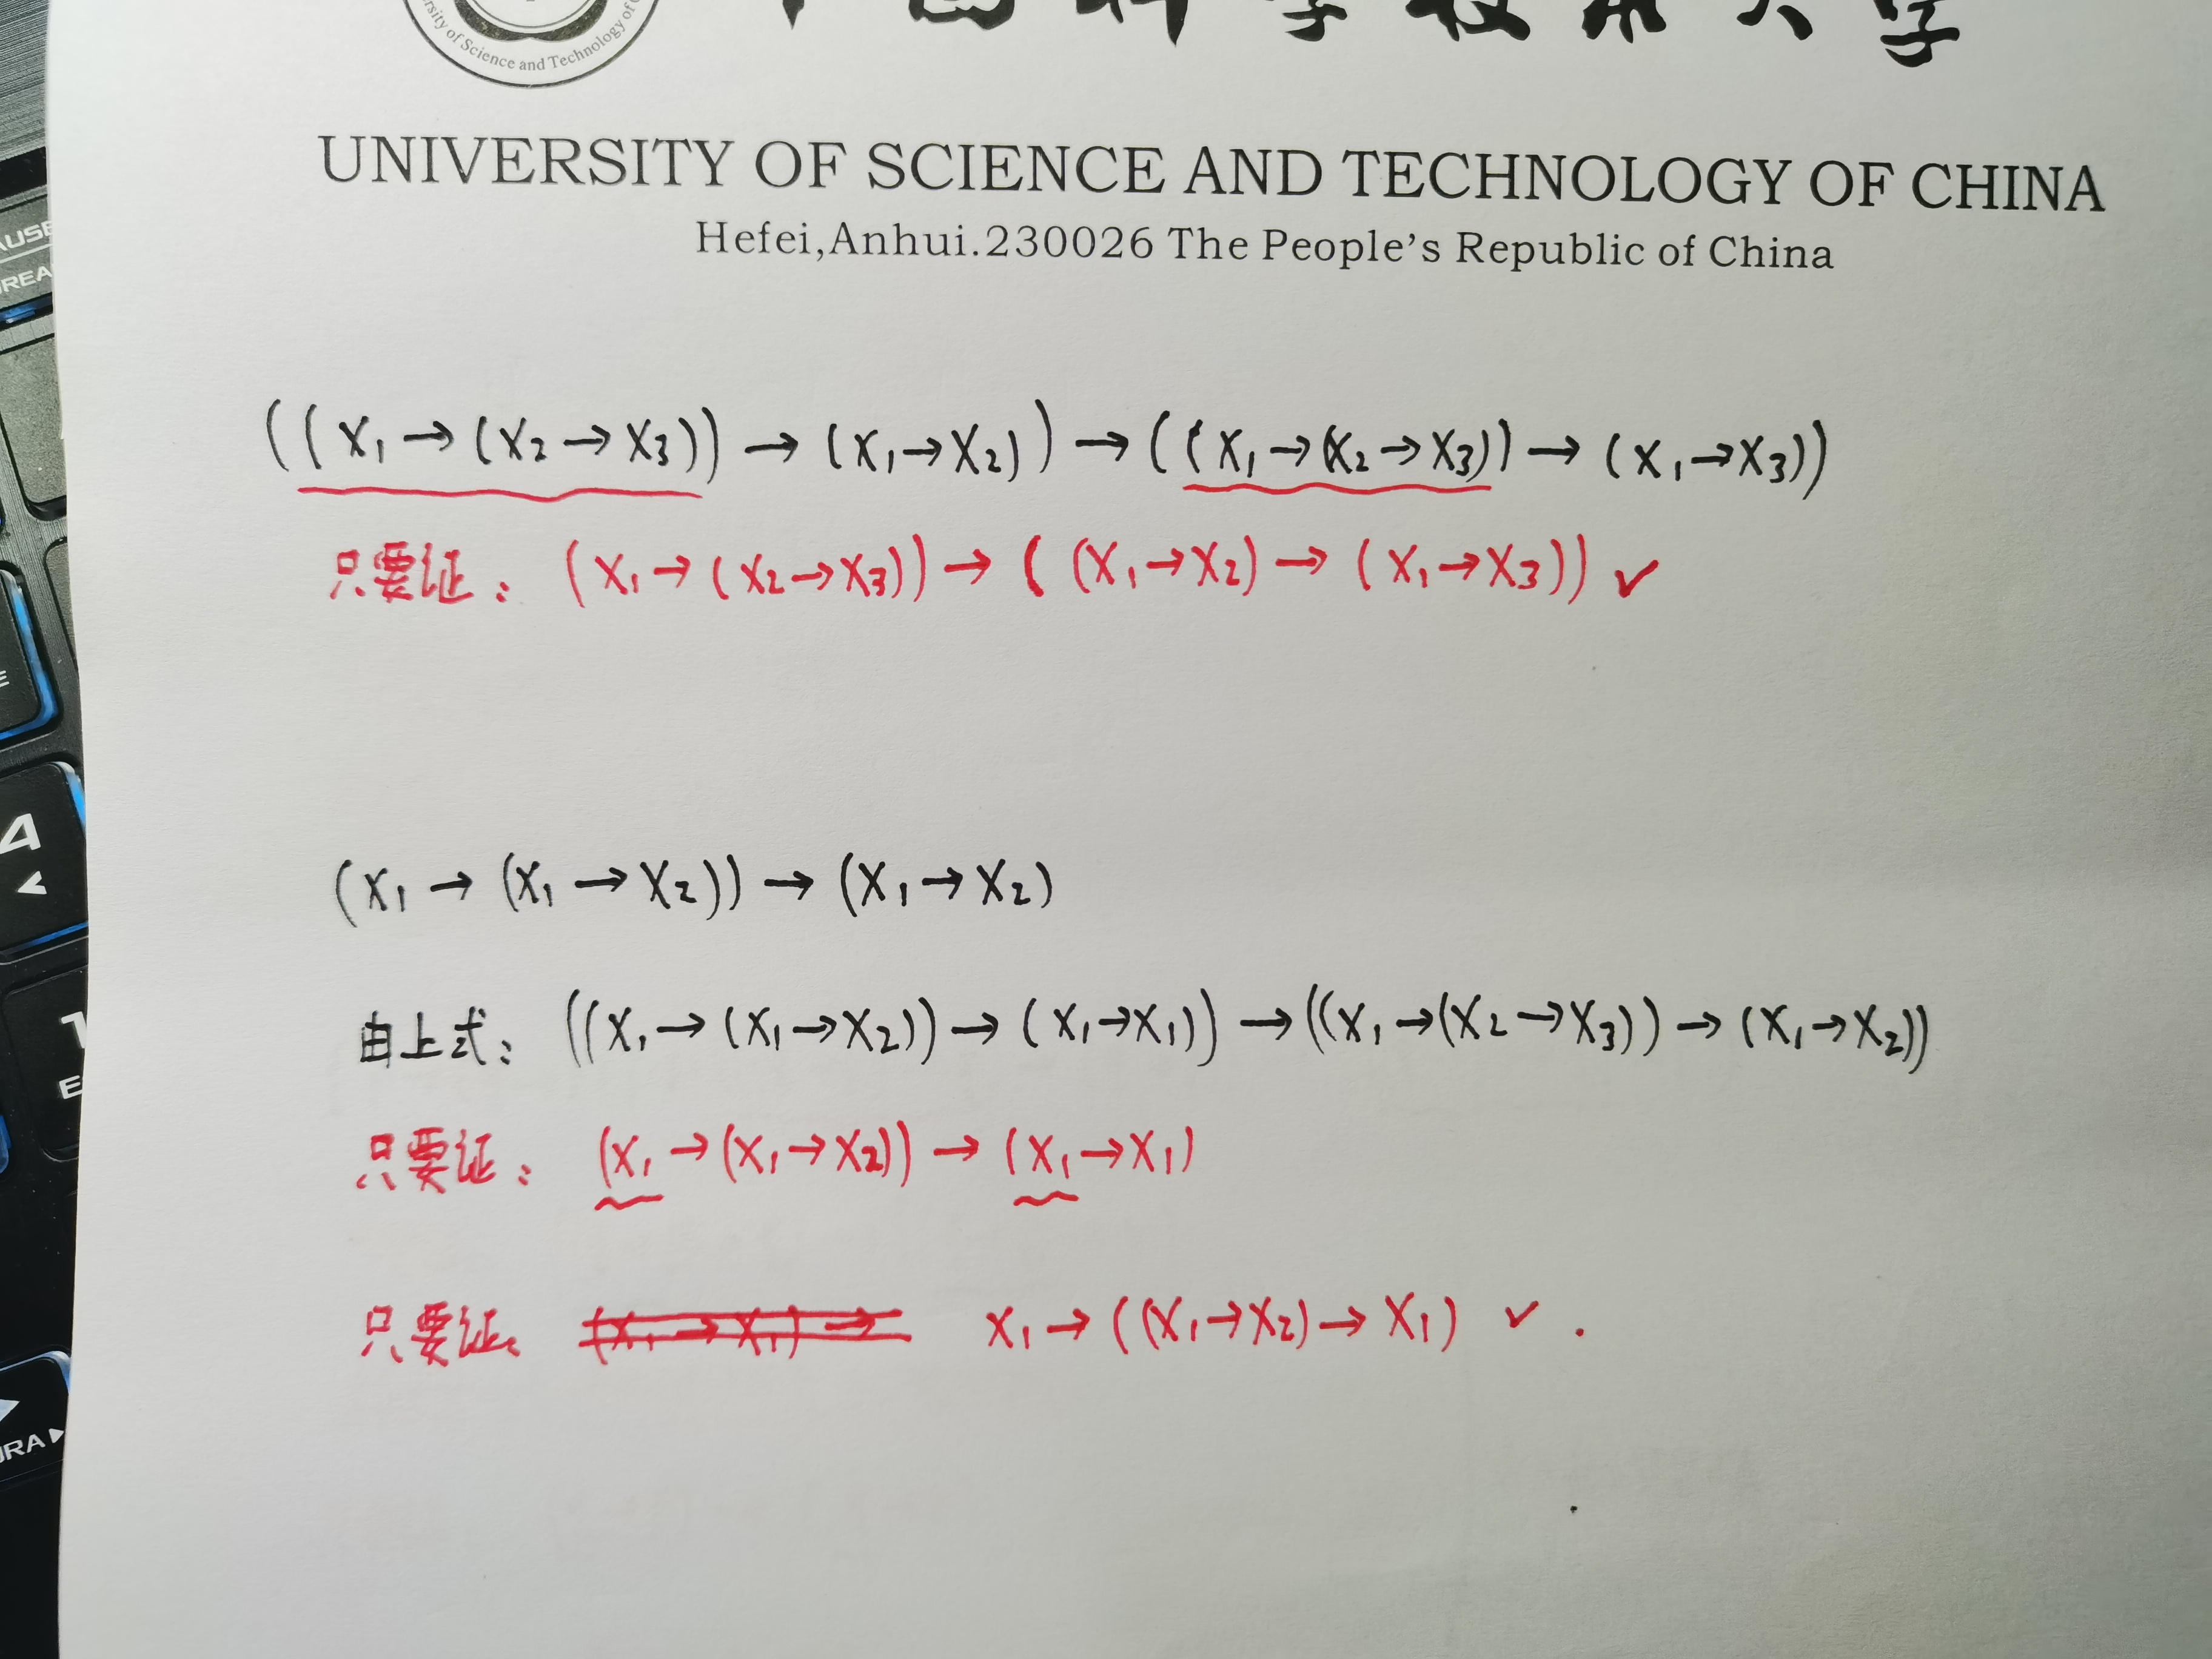 中国科学技术大学
University of Science and Technology of
UNIVERSITY OF SCIENCE AND TECHNOLOGY OF CHINA
Hefei,Anhui.230026 The People's Republic of China
((x₁→(x₂→x₃))→(x₁→x₂))→((x₁→(x₂→x₃))→(x₁→x₃))
只要证: (x₁→(x₂→x₃))→((x₁→x₂)→(x₁→x₃)) ✓
(x₁→(x₁→x₂))→(x₁→x₂)
由上式: ((x₁→(x₁→x₂))→(x₁→x₁))→((x₁→(x₂→x₃))→(x₁→x₂))
只要证: (x₁→(x₁→x₂))→(x₁→x₁)
只要证: x₁→((x₁→x₂)→x₁) ✓.
A
<